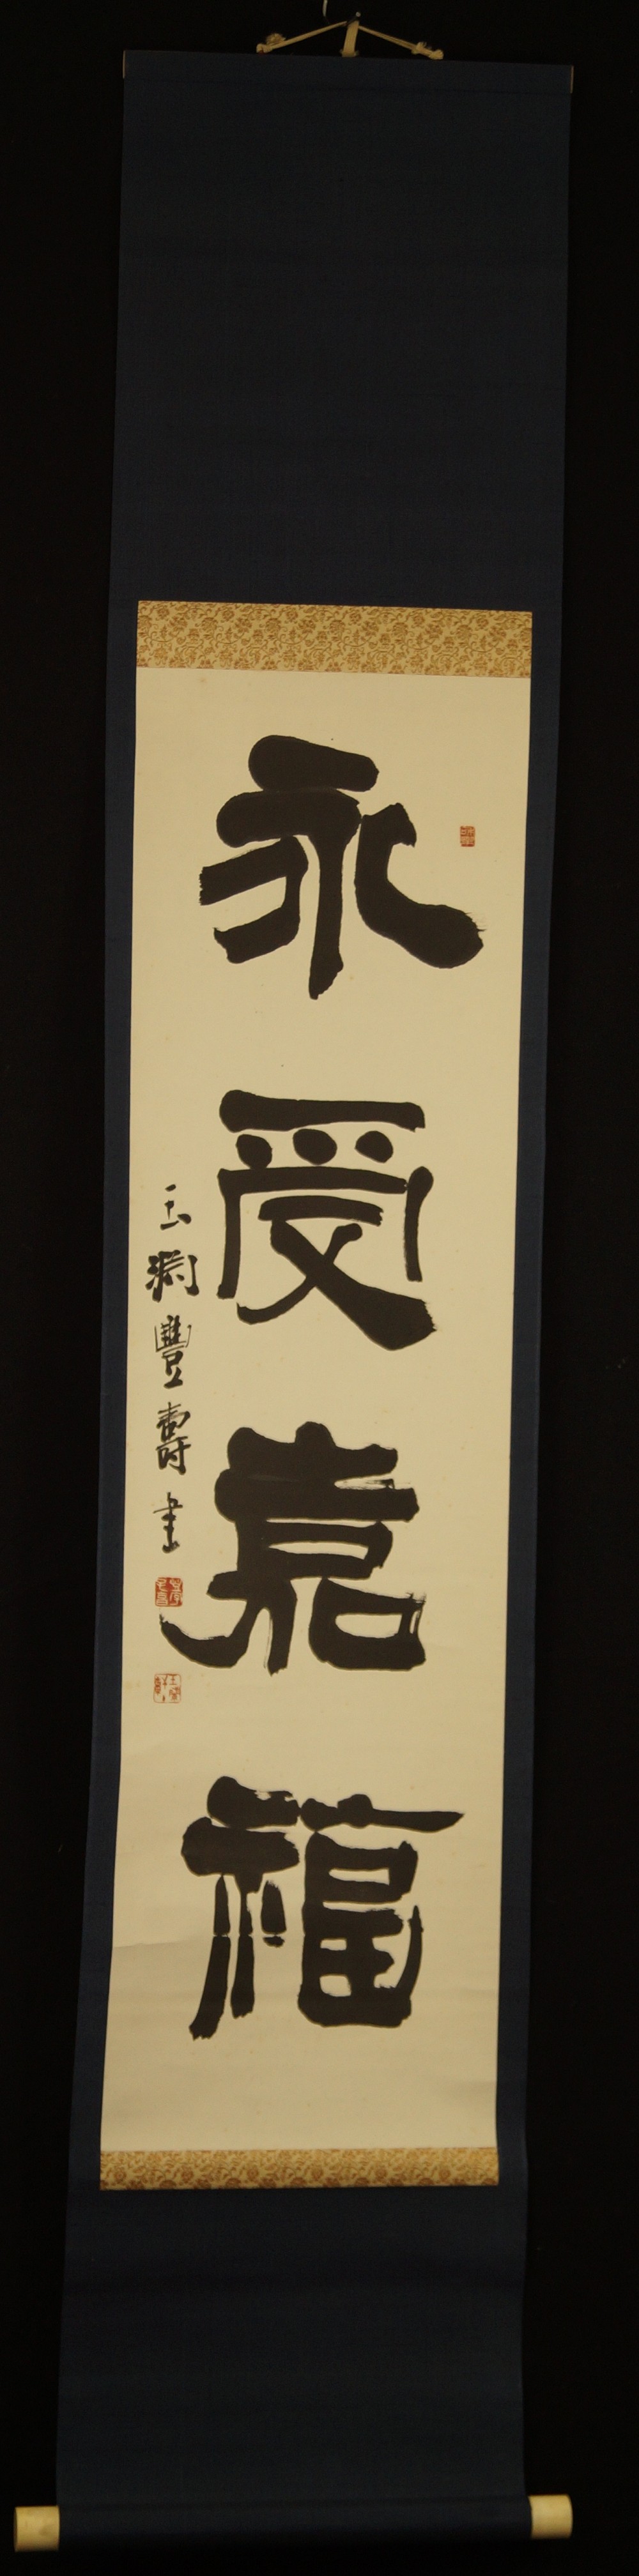 永受嘉福
玉淵豐壽書